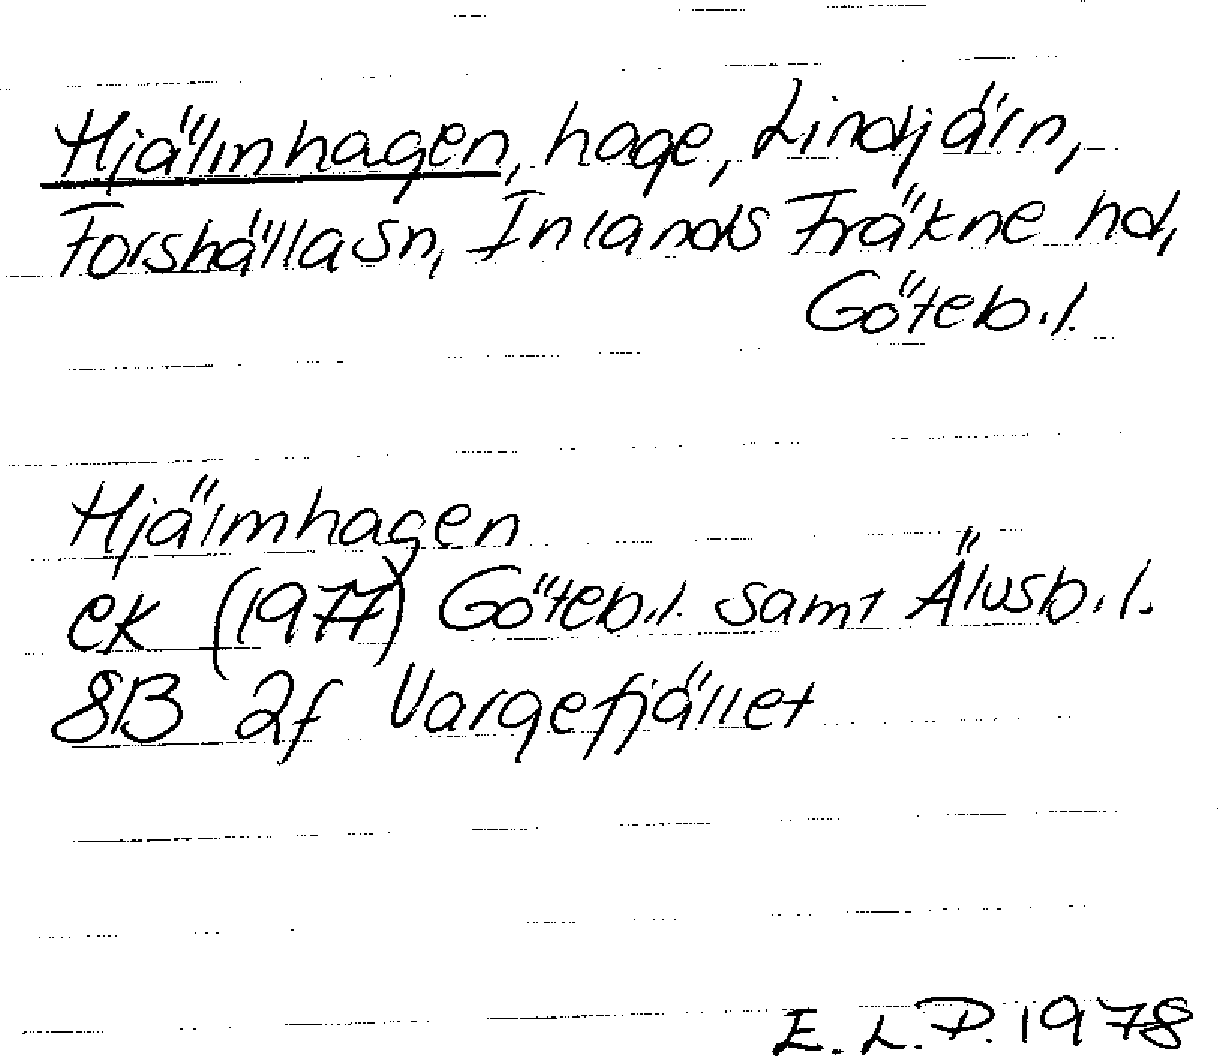 Hjälmhagen, hage, Lindjärn,
Forshälla sn, Inlands Fräkne hd,
Göteb. l.
Hjälmhagen
ek (1977) Göteb. l. samt Älvsb. l.
8B 2f Vargefjället
E. L. D. 1978